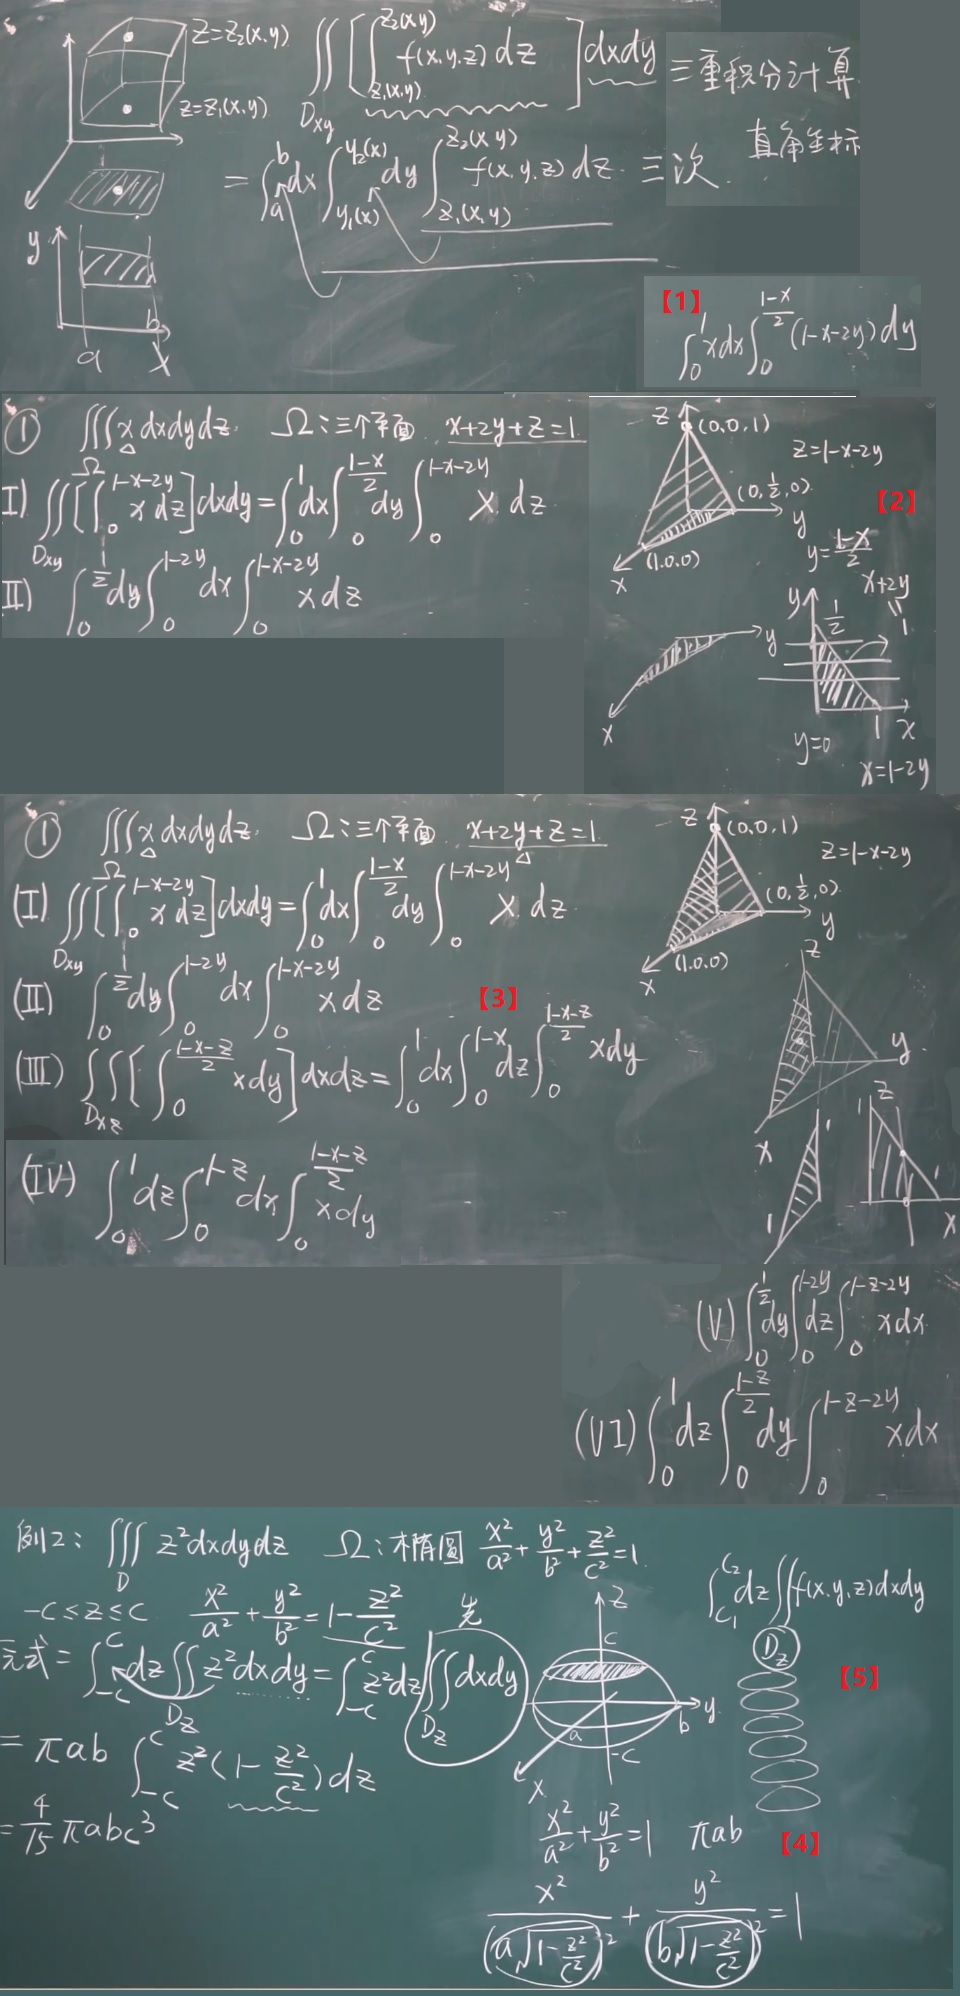 z=z₂(x,y)
z=z₁(x,y)
y
a b x
∬_{Dxy} [∫_{z₁(x,y)}^{z₂(x,y)} f(x,y,z)dz] dxdy 三重积分计算
直角坐标
= ∫_a^b dx ∫_{y₁(x)}^{y₂(x)} dy ∫_{z₁(x,y)}^{z₂(x,y)} f(x,y,z)dz 三次
【1】
∫_0^1 xdx ∫_0^{(1-x)/2} (1-x-2y)dy
① ∭_Ω x dxdydz Ω:三个平面 x+2y+z=1
I) ∬_{Dxy} [∫_0^{1-x-2y} x dz] dxdy = ∫_0^1 dx ∫_0^{(1-x)/2} dy ∫_0^{1-x-2y} x dz
II) ∫_0^{1/2} dy ∫_0^{1-2y} dx ∫_0^{1-x-2y} x dz
z (0,0,1)
z=1-x-2y
(0,1/2,0)
【2】
y
(1,0,0)
x
y=(1-x)/2
x+2y
=1
y 1/2
y
x
1 x
y=0
x=1-2y
① ∭_Ω x dxdydz Ω:三个平面 x+2y+z=1
(I) ∬_{Dxy} [∫_0^{1-x-2y} x dz] dxdy = ∫_0^1 dx ∫_0^{(1-x)/2} dy ∫_0^{1-x-2y} x dz
(II) ∫_0^{1/2} dy ∫_0^{1-2y} dx ∫_0^{1-x-2y} x dz
【3】
(III) ∬_{Dxz} [∫_0^{(1-x-z)/2} xdy] dxdz = ∫_0^1 dx ∫_0^{1-x} dz ∫_0^{(1-x-z)/2} xdy
(IV) ∫_0^1 dz ∫_0^{1-z} dx ∫_0^{(1-x-z)/2} xdy
z (0,0,1)
z=1-x-2y
(0,1/2,0)
y
(1,0,0)
x
z
y
x
1
1
1 z
1
x
(V) ∫_0^{1/2} dy ∫_0^{1-2y} dz ∫_0^{1-z-2y} xdx
(VI) ∫_0^1 dz ∫_0^{(1-z)/2} dy ∫_0^{1-z-2y} xdx
例2: ∭_D z²dxdydz Ω:椭圆 x²/a²+y²/b²+z²/c²=1
-c≤z≤c x²/a²+y²/b²=1-z²/c²
先
式= ∫_{-c}^c dz ∬_{Dz} z²dxdy = ∫_{-c}^c z²dz ∬_{Dz} dxdy
= πab ∫_{-c}^c z²(1-z²/c²)dz
= 4/15 πabc³
z
c
b y
a
-c
x
∫_{C₁}^{C₂} dz ∬ f(x,y,z)dxdy
Dz
【5】
x²/a²+y²/b²=1 πab
【4】
x²/(a√(1-z²/c²))² + y²/(b√(1-z²/c²))² = 1